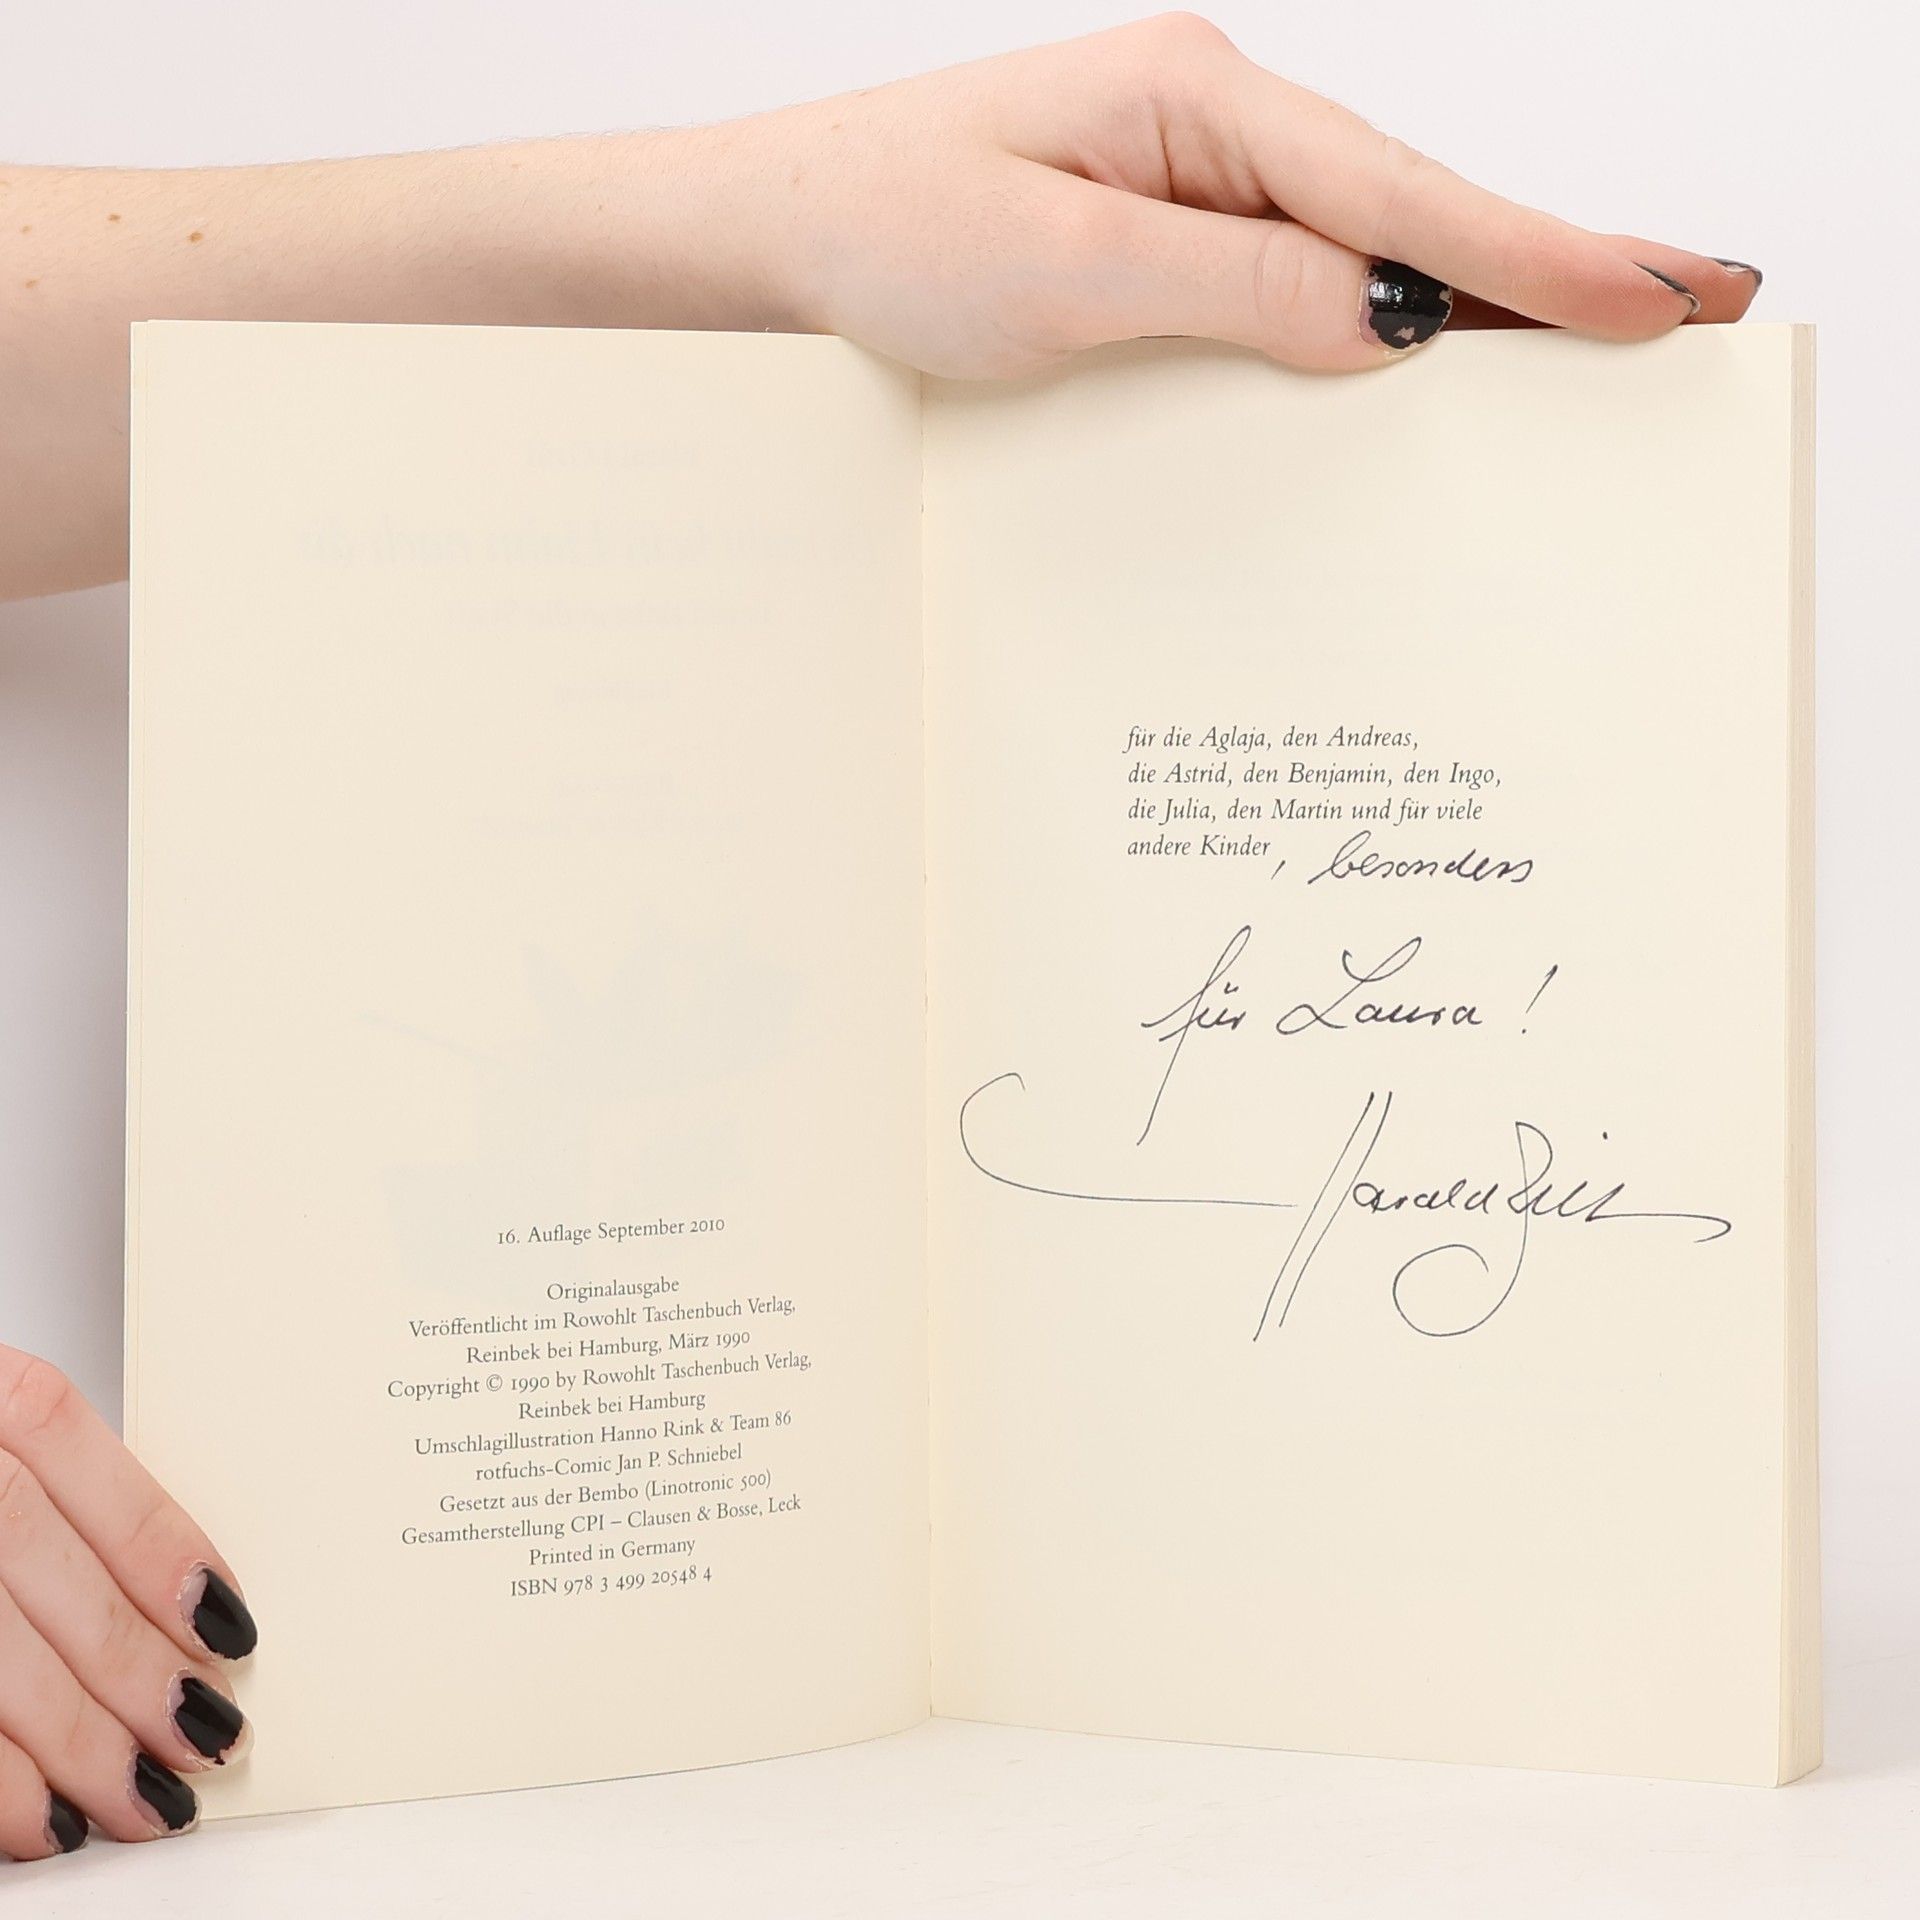 16. Auflage September 2010
Originalausgabe
Veröffentlicht im Rowohlt Taschenbuch Verlag,
Reinbek bei Hamburg, März 1990
Copyright © 1990 by Rowohlt Taschenbuch Verlag,
Reinbek bei Hamburg
Umschlagillustration Hanno Rink & Team 86
rotfuchs-Comic Jan P. Schniebel
Gesetzt aus der Bembo (Linotronic 500)
Gesamtherstellung CPI – Clausen & Bosse, Leck
Printed in Germany
ISBN 978 3 499 20548 4
für die Aglaja, den Andreas,
die Astrid, den Benjamin, den Ingo,
die Julia, den Martin und für viele
andere Kinder, besonders
für Laura!
Harald